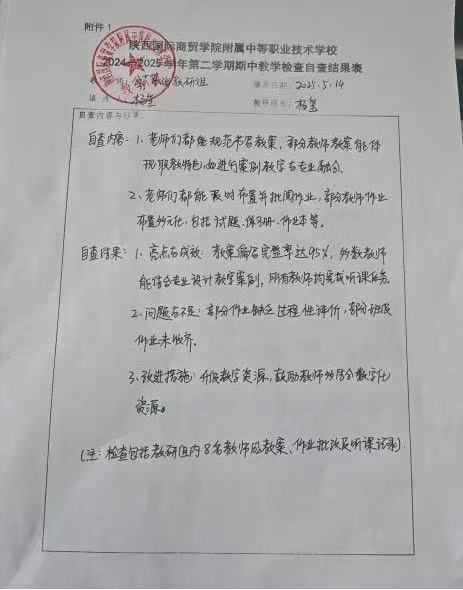 附件1
陕西国际商贸学院附属中等职业技术学校
2024-2025学年第二学期期中教学检查自查结果表
教研组
填表日期：2025.5.14
填
教研组长：
自查内容与结果：
自查内容：1、老师们都能规范书写教案，部分教师教案能体
现职教特色，进行案例教学与专业融合。
2、老师们都能及时布置并批阅作业，部分教师作业
布置多元化，包括试题、练习册、作业本等。
自查结果：1、亮点与成效：教案编写完整率达95%，多数教师
能结合专业设计教学案例，所有教师均完成听课任务。
2、问题与不足：部分作业缺乏过程性评价，部分班级
作业未收齐。
3、改进措施：开展教学资源，鼓励教师多结合数字化
资源。
(注：检查包括教研组内8名教师的教案、作业批改及听课记录)